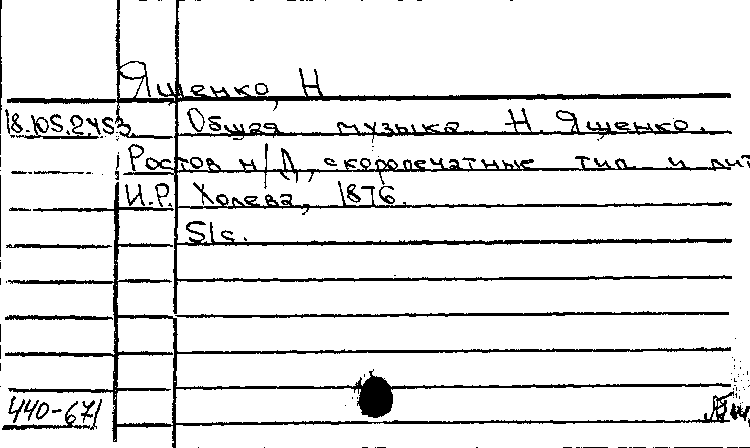 Ященко, Н
18.105.2.453 Общая музыка Н. Ященко.
Ростов н/Д, скоропечатные тип. и лит
И.Р. Холева, 1876.
51с.
440-671